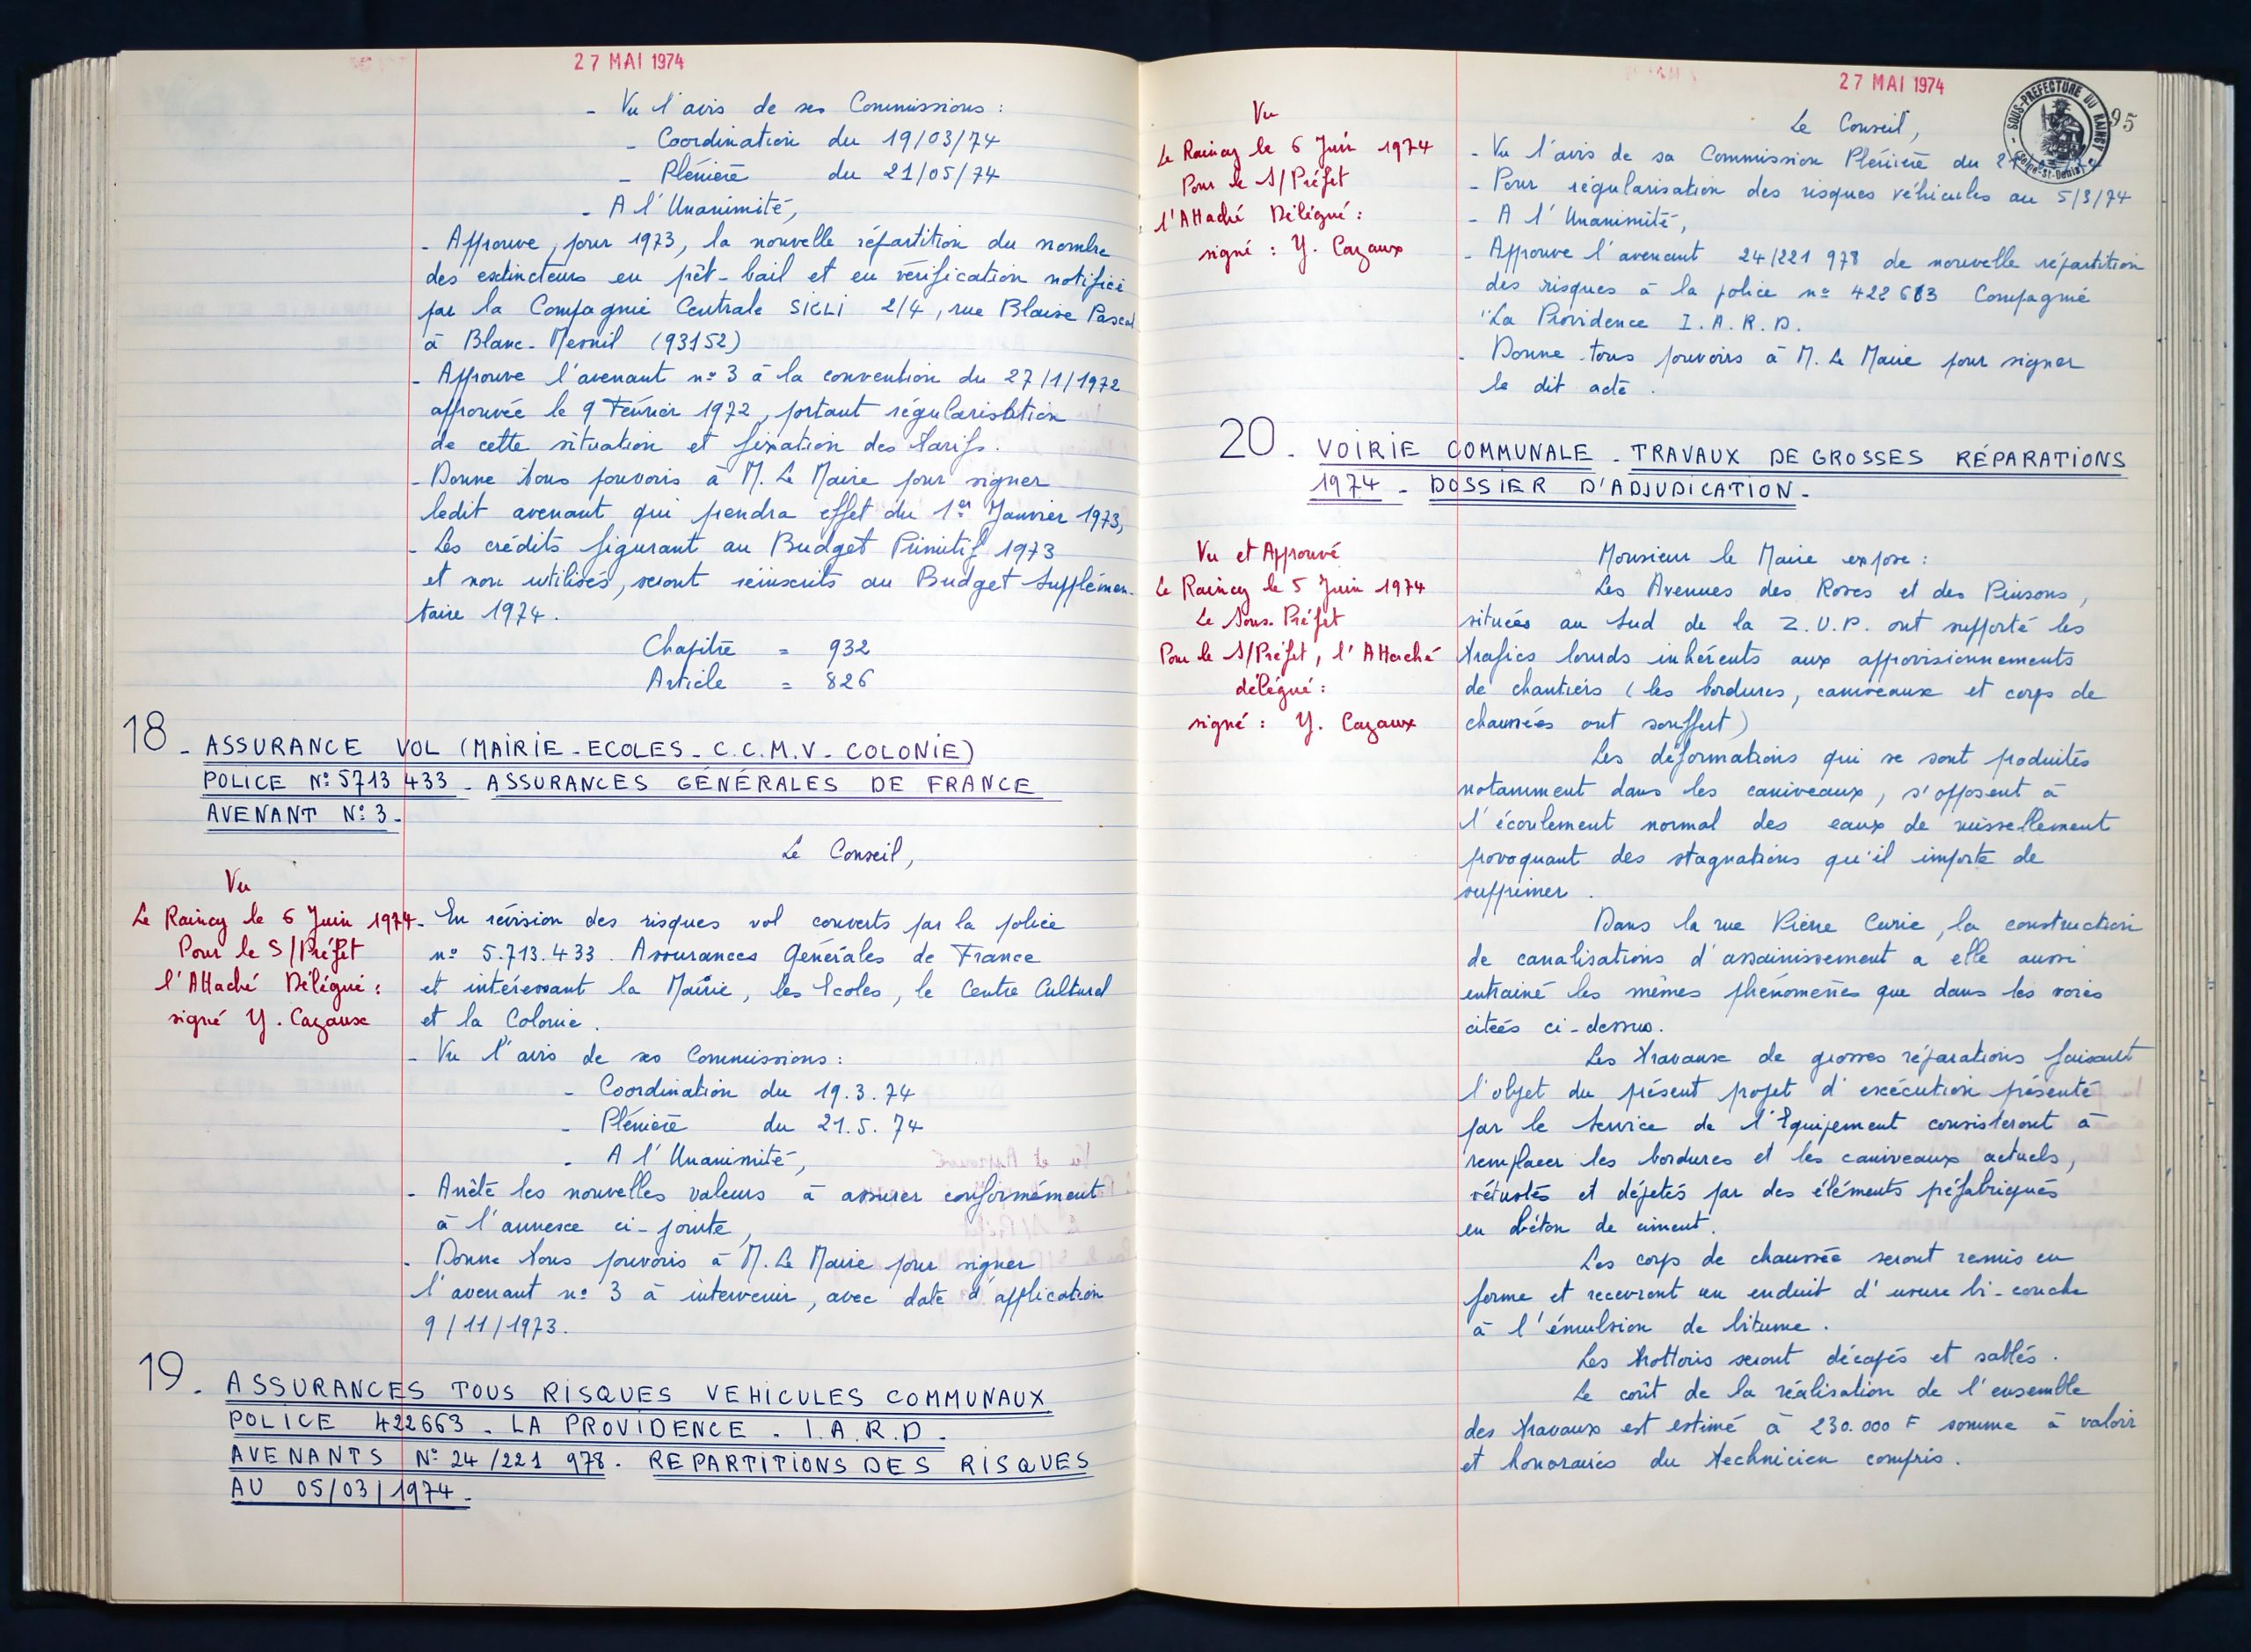 27 MAI 1974
- Vu l'avis de ses Commissions :
- Coordination du 19/03/74
- Plénière du 21/05/74
- A l'Unanimité,
- Approuve, pour 1973, la nouvelle répartition du nombre
des extincteurs en prêt-bail et en vérification notifiée
par la Compagnie Centrale SICLI 2/4, rue Blaise Pascal
à Blanc-Mesnil (93152)
- Approuve l'avenant n° 3 à la convention du 27/1/1972
approuvée le 9 Février 1972, portant régularisation
de cette situation et fixation des tarifs.
- Donne tous pouvoirs à M. Le Maire pour signer
ledit avenant qui prendra effet du 1er Janvier 1973,
- Les crédits figurant au Budget Primitif 1973
et non utilisés, seront réinscrits au Budget Supplémen-
taire 1974.
Chapitre = 932
Article = 826
18 - ASSURANCE VOL (MAIRIE - ECOLES - C.C.M.V - COLONIE)
POLICE N° 5713 433 - ASSURANCES GÉNÉRALES DE FRANCE
AVENANT N° 3 -
Le Conseil,
Vu
Le Raincy le 6 Juin 1974
Pour le S/Préfet
l'Attaché Délégué :
signé Y. Cazaux
- En révision des risques vol couverts par la police
n° 5.713.433 Assurances Générales de France
et intéressant la Mairie, les Ecoles, le Centre Culturel
et la Colonie.
- Vu l'avis de ses Commissions :
- Coordination du 19.3.74
- Plénière du 21.5.74
- A l'Unanimité,
- Arrête les nouvelles valeurs à assurer conformément
à l'annexe ci-jointe,
- Donne tous pouvoirs à M. Le Maire pour signer
l'avenant n° 3 à intervenir, avec date d'application
9/11/1973.
19. ASSURANCES TOUS RISQUES VEHICULES COMMUNAUX
POLICE 422663 - LA PROVIDENCE - I.A.R.D -
AVENANTS N° 24/221 978. REPARTITIONS DES RISQUES
AU 05/03/1974 -
27 MAI 1974
SOUS-PREFECTURE DU RAINCY
(Seine-St-Denis)
95
Vu
Le Raincy le 6 Juin 1974
Pour le S/Préfet
l'Attaché Délégué :
signé : Y. Cazaux
Le Conseil,
- Vu l'avis de sa Commission Plénière du
- Pour régularisation des risques véhicules au 5/3/74
- A l'Unanimité,
- Approuve l'avenant 24/221 978 de nouvelle répartition
des risques à la police n° 422 663 Compagnie
"La Providence I.A.R.D.
- Donne tous pouvoirs à M. Le Maire pour signer
le dit acte.
20. VOIRIE COMMUNALE - TRAVAUX DE GROSSES RÉPARATIONS
1974 - DOSSIER D'ADJUDICATION -
Vu et Approuvé
Le Raincy le 5 Juin 1974
Le Sous-Préfet
Pour le S/Préfet, l'Attaché
délégué :
signé : Y. Cazaux
Monsieur le Maire expose :
Les Avenues des Roses et des Pinsons,
situées au Sud de la Z.U.P. ont supporté les
trafics lourds inhérents aux approvisionnements
de chantiers (les bordures, caniveaux et corps de
chaussées ont souffert)
Les déformations qui se sont produites
notamment dans les caniveaux, s'opposent à
l'écoulement normal des eaux de ruissellement
provoquant des stagnations qu'il importe de
supprimer.
Dans la rue Pierre Curie, la construction
de canalisations d'assainissement a elle aussi
entrainé les mêmes phénomènes que dans les voies
citées ci-dessus.
Les travaux de grosses réparations faisant
l'objet du présent projet d'exécution présenté
par le Service de l'Equipement consisteront à
remplacer les bordures et les caniveaux actuels,
vétustes et déjetés par des éléments préfabriqués
en béton de ciment.
Les corps de chaussée seront remis en
forme et recevront un enduit d'usure bi-couche
à l'émulsion de bitume.
Les trottoirs seront décapés et sablés.
Le coût de la réalisation de l'ensemble
des travaux est estimé à 230.000 F somme à valoir
et honoraires du technicien compris.